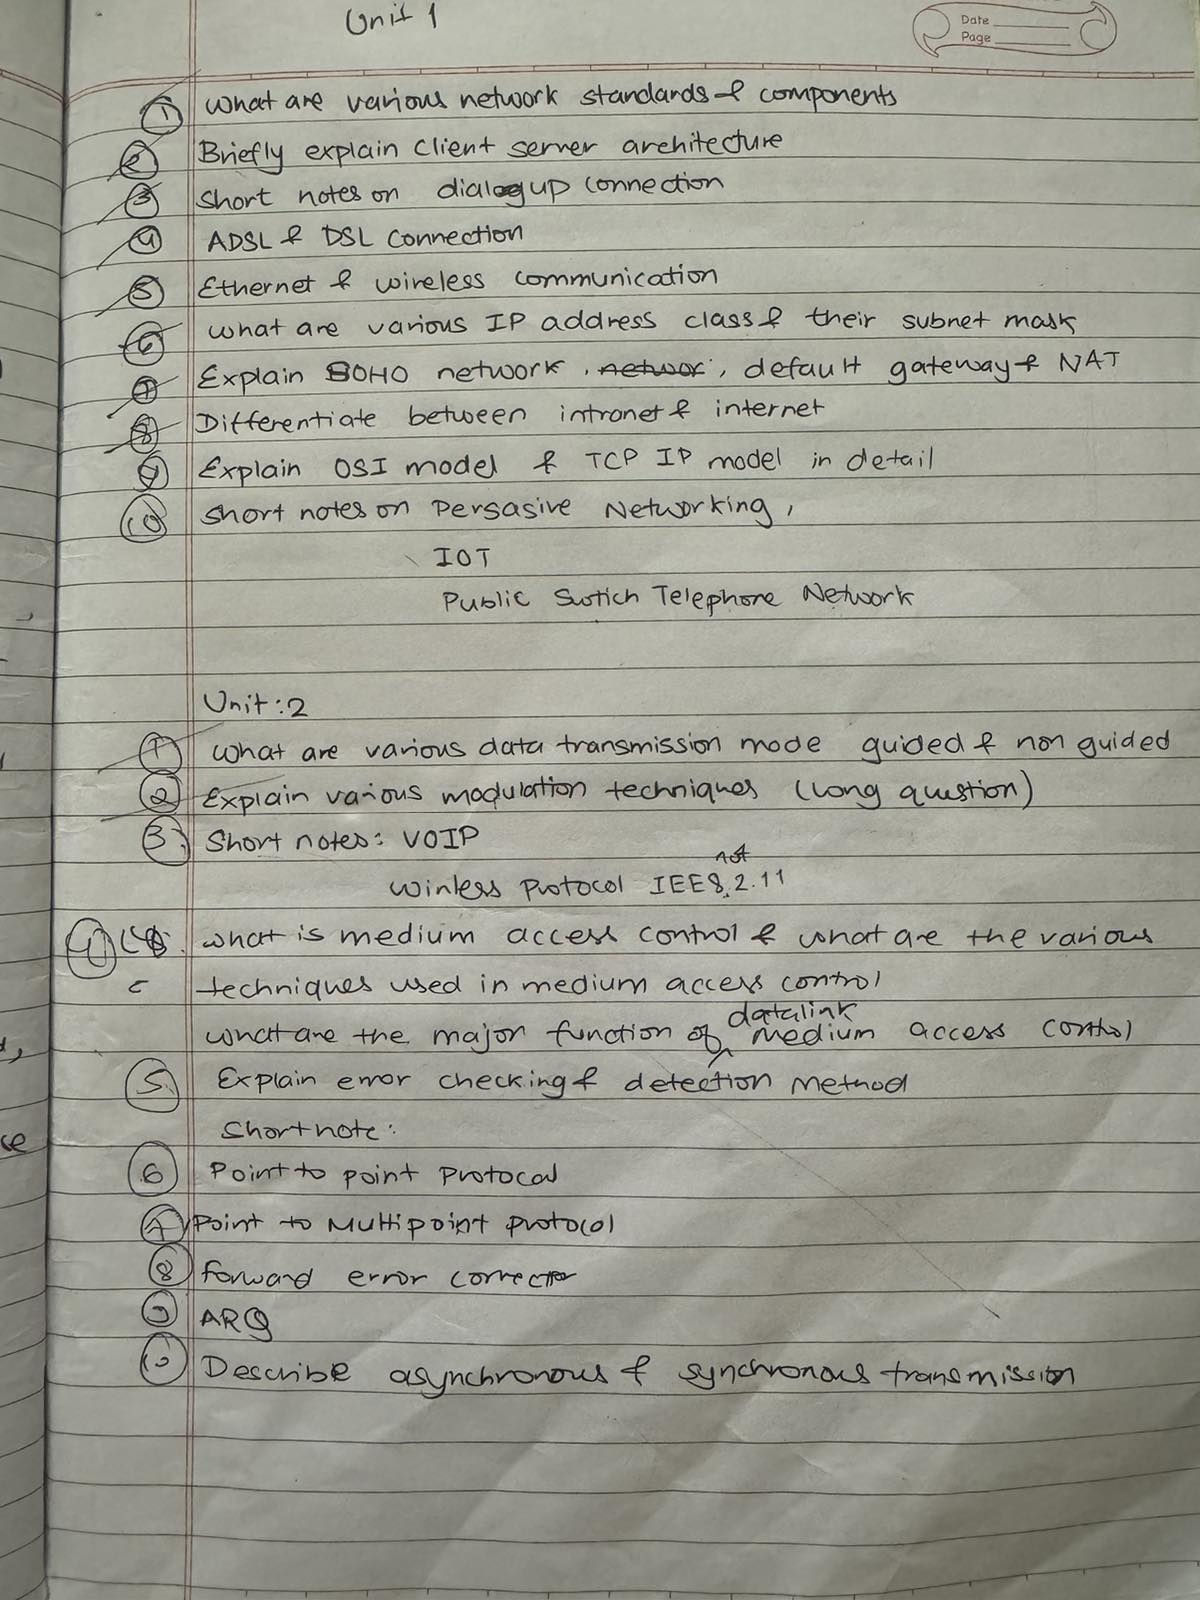 Unit 1
Date
Page
1 What are various network standards & components
2 Briefly explain Client server architecture
3 Short notes on dialogup connection
4 ADSL & DSL Connection
5 Ethernet & wireless communication
6 what are various IP address class & their subnet mask
7 Explain SOHO network, networ, default gateway & NAT
8 Differentiate between intranet & internet
9 Explain OSI model & TCP IP model in detail
10 Short notes on Persasive Networking,
IOT
Public Swtich Telephone Network
Unit:2
1 What are various data transmission mode guided & non guided
2 Explain various modulation techniques (long question)
3. Short notes: VOIP
Winless Protocol IEE8.2.11
4 What is medium access control & what are the various
techniques used in medium access control
datalink
What are the major function of medium access control
5. Explain error checking & detection Method
Shortnote:
6 Point to point Protocal
7 Point to Multipoint protocol
8 Forward error
9 ARQ
10 Describe asynchronous & synchronous transmission